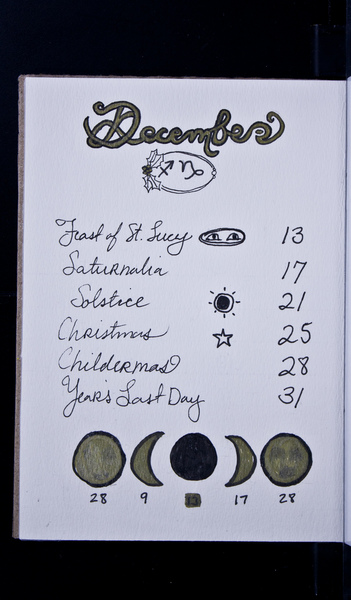 December
♐ ♑
Feast of St. Lucy 13
Saturnalia 17
Solstice 21
Christmas 25
Childermas 28
Year's Last Day 31
28 9 17 28